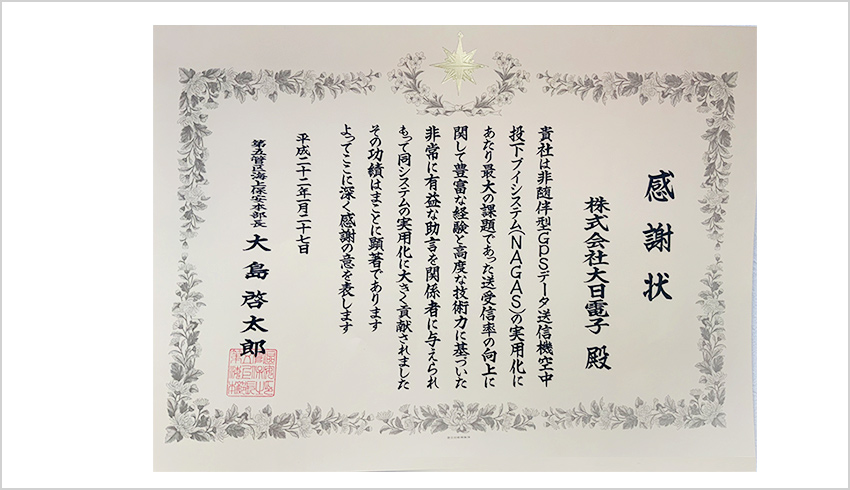 感謝状
株式会社大日電子 殿
貴社は非随伴型GPSデータ送信機空中
投下ブイシステム(NAGAS)の実用化に
あたり最大の課題であった送受信率の向上に
関して豊富な経験と高度な技術力に基づいた
非常に有益な助言を関係者に与えられ
もって同システムの実用化に大きく貢献されました
その功績はまことに顕著であります
よってここに深く感謝の意を表します
平成二十二年一月二十七日
第五管区海上保安本部長 大島啓太郎